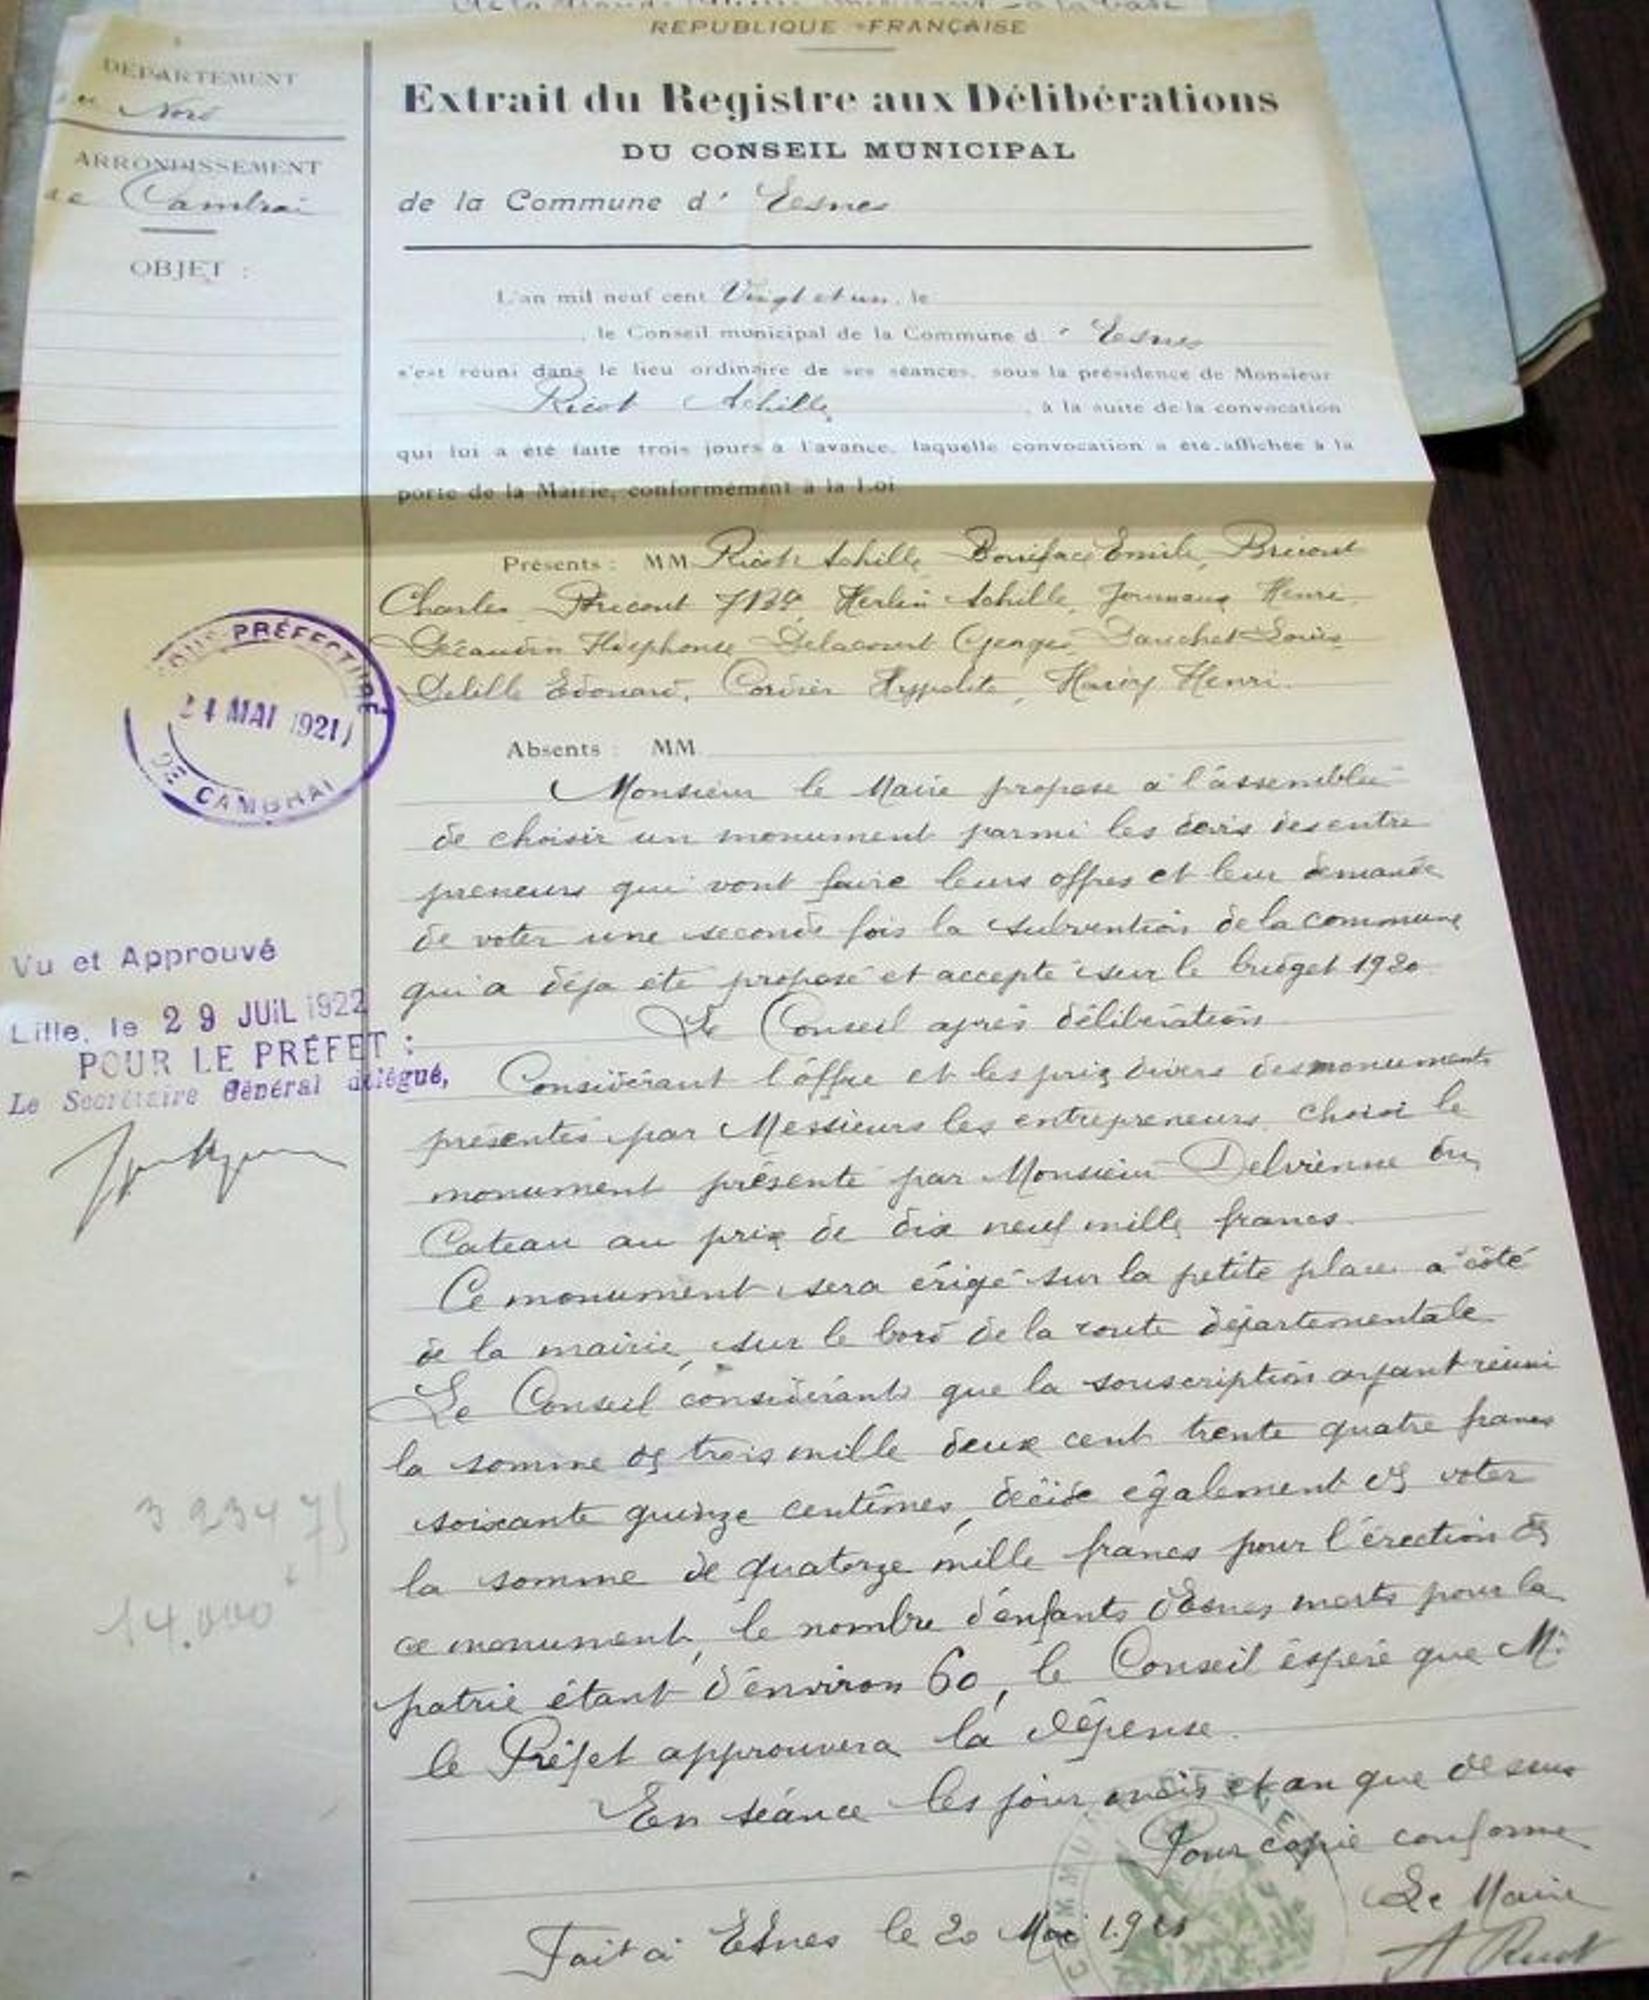 RÉPUBLIQUE FRANÇAISE
DÉPARTEMENT
du Nord
ARRONDISSEMENT
de Cambrai
OBJET :
Extrait du Registre aux Délibérations
DU CONSEIL MUNICIPAL
de la Commune d' Esnes
L'an mil neuf cent Vingt et un, le
, le Conseil municipal de la Commune d' Esnes
s'est réuni dans le lieu ordinaire de ses séances, sous la présidence de Monsieur
Ricot Achille, à la suite de la convocation
qui lui a été faite trois jours à l'avance, laquelle convocation a été affichée à la
porte de la Mairie, conformément à la Loi
Présents : MM Ricot Achille, Boniface Emile, Bricout
Charles Bricout Herlin Achille, Henri
Delacourt Georges Louis
Delille Edouard, Cordier Hyppolite, Henri.
Absents : MM
Monsieur le Maire propose à l'assemblée
de choisir un monument parmi les devis des entre
preneurs qui vont faire leurs offres et leur demande
de voter une seconde fois la subvention de la commune
qui a déja été proposé et accepté sur le budget 1920
Le Conseil après délibération
Considérant l'offre et les prix divers des monuments
présentés par Messieurs les entrepreneurs, choisi le
monument présenté par Monsieur Delvienne du
Cateau au prix de dix neuf mille francs.
Ce monument sera érigé sur la petite place à côté
de la mairie, sur le bord de la route départementale
Le Conseil considérant que la souscription ayant réuni
la somme de trois mille deux cent trente quatre francs
soixante quinze centimes, décide également de voter
la somme de quatorze mille francs pour l'érection de
ce monument, le nombre d'enfants d'Esnes morts pour la
patrie étant d'environ 60, le Conseil éspère que Mr
le Préfet approuvera la dépense.
En séance les jour mois et an que dessus
Pour copie conforme
Le Maire
Fait à Esnes le 20 Mai 1921
A Ricot
SOUS PRÉFECTURE
24 MAI 1921
DE CAMBRAI
Vu et Approuvé
Lille, le 29 JUIL 1922
POUR LE PRÉFET :
Le Secrétaire Général délégué,
3 234 75
14.000
COMMUNE